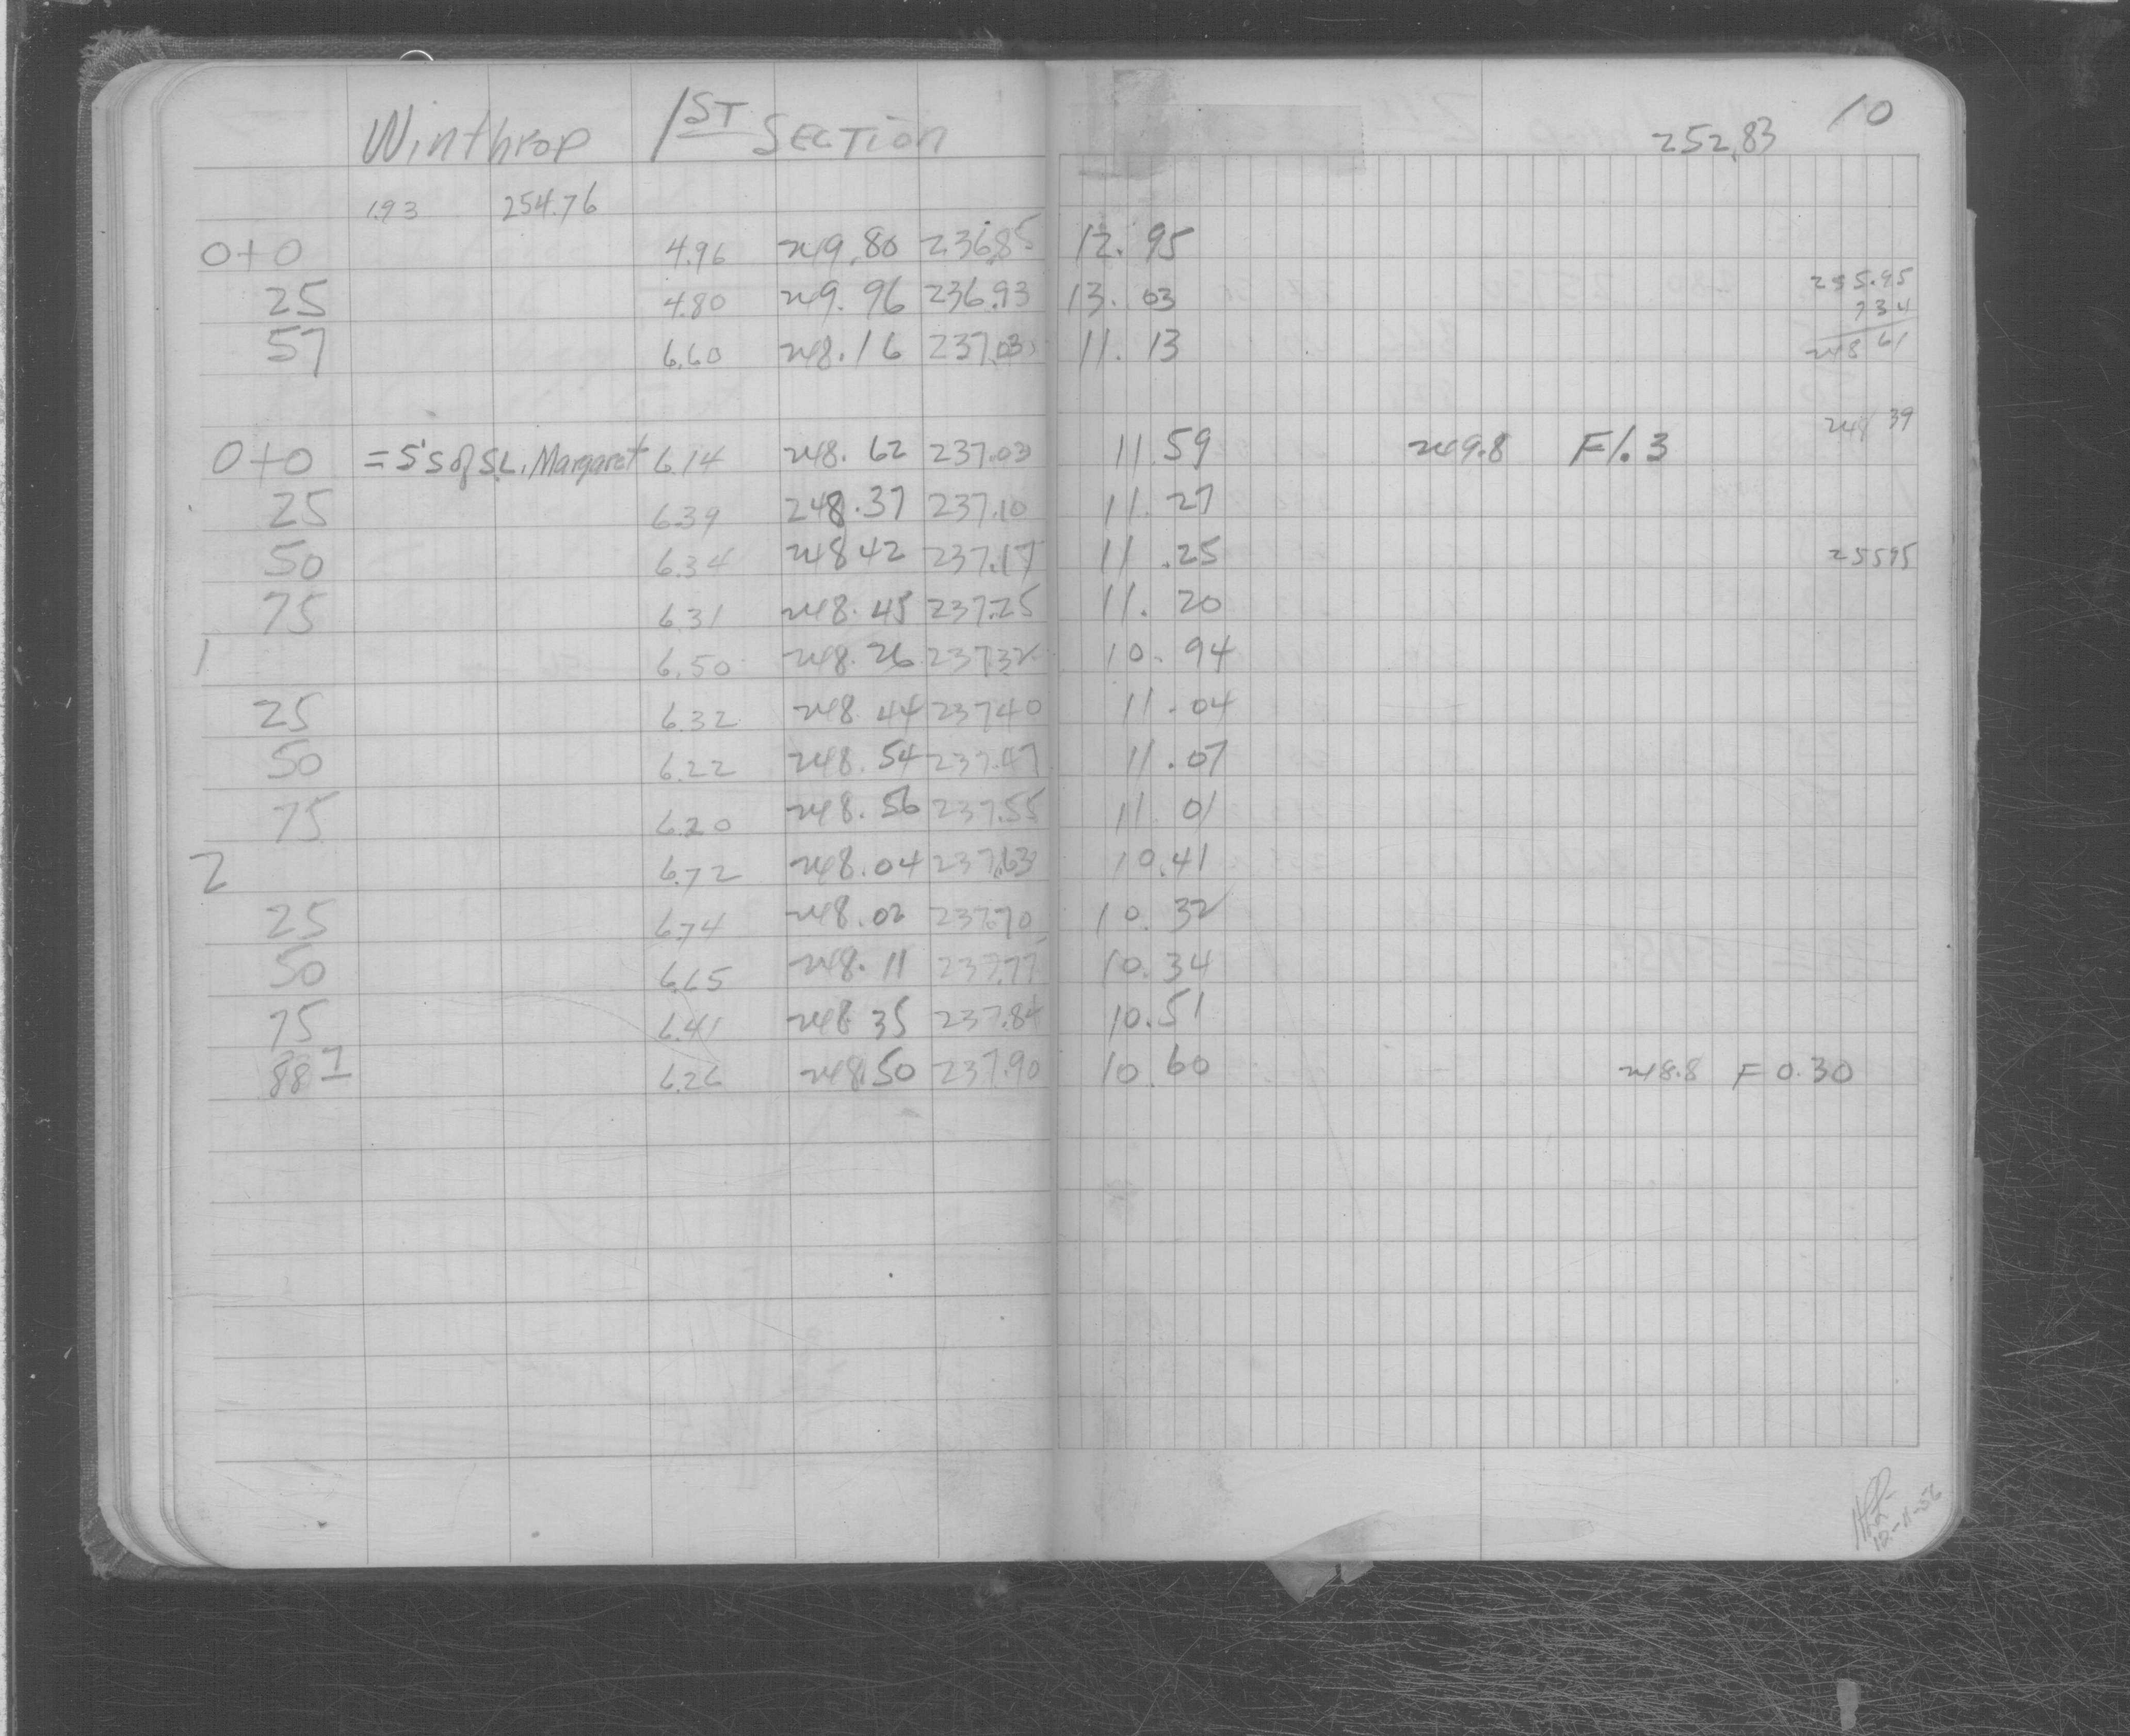 Winthrop 1ST SECTION
10
252.83
1.93 254.76
0+0 4.96 249.80 236.85 12.95
25 4.80 249.96 236.93 13.03
255.95
734
57 6.60 248.16 237.03 11.13
248 61
248 39
0+0 = 5'S of S.L. Margaret 6.14 248.62 237.03 11.59 249.8 F1.3
25 6.39 248.37 237.10 11.27
50 6.34 248 42 237.17 11.25 255 95
75 6.31 248.45 237.25 11.20
1 6.50 248.26 237.32 10.94
25 6.32 248 44 237 40 11.04
50 6.22 248.54 237.47 11.07
75 6.20 248.56 237.55 11 01
2 6.72 248.04 237.63 10.41
25 6.74 248.02 237.70 10.32
50 6.65 248.11 237.77 10.34
75 6.41 248 35 237.84 10.51
88 7 6.26 248.50 237.90 10.60 248.8 F 0.30
12-11-56